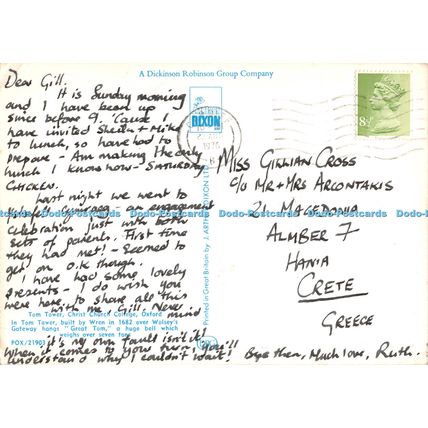 A Dickinson Robinson Group Company
Dear Gill.
It is Sunday morning
and I have been up
since before 9. 'Cause I
have invited Sheila + Mike
to lunch, so have had to
prepare - Am making the only
lunch I know how - SATURDAY
CHICKEN.
Last night we went to
an engagement
celebration just with both
sets of parents. First time
they had met! - Seemed to
get on O.K though.
I have had some lovely
presents - I do wish you
were here to share all this
with me, Gill. Never mind
it's my own fault isn't it!
When it comes to your turn, you'll
understand why I couldn't wait!
Bye then, Much love, Ruth.
Tom Tower, Christ Church College, Oxford
In Tom Tower, built by Wren in 1682 over Wolsey's
Gateway hangs "Great Tom," a huge bell which
weighs over seven tons
POX/21903
DIXON
Printed in Great Britain by J. ARTHUR DIXON LTD
1976
8½P
MISS GILLIAN CROSS
c/o MR + MRS ARCONTAKIS
21 MACEDONIA
ALMBER 7
HANIA
CRETE
GREECE
Dodo-Postcards Dodo-Postcards Dodo-Postcards Dodo-Postcards Dodo-Postcards